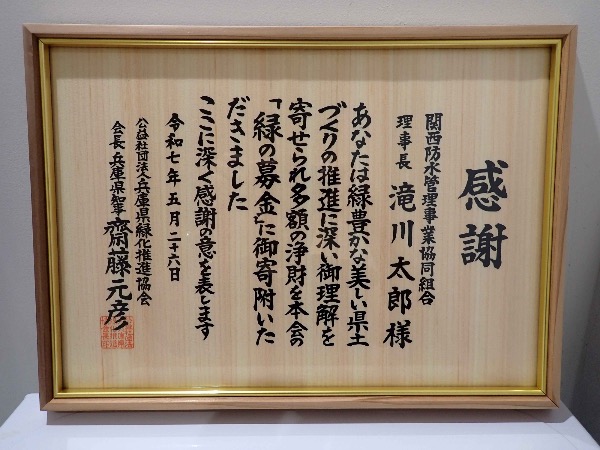 感謝
関西防水管理事業協同組合
理事長 滝川太郎様
あなたは緑豊かな美しい県土
づくりの推進に深い御理解を
寄せられ多額の浄財を本会の
「緑の募金」に御寄附いた
だきました
ここに深く感謝の意を表します
令和七年五月二十六日
公益社団法人兵庫県緑化推進協会
会長 兵庫県知事 齋藤元彦